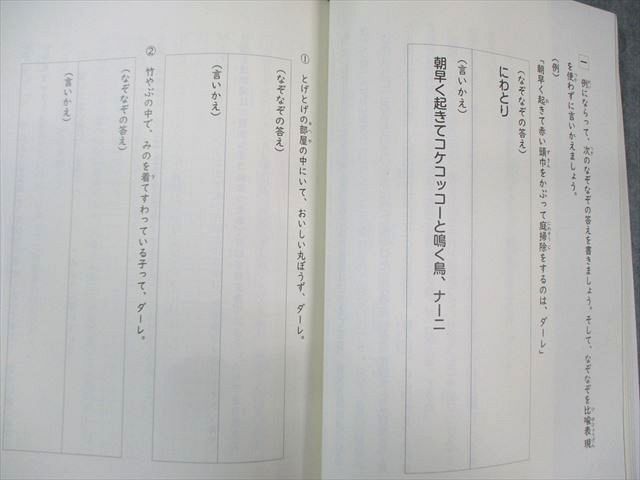 一 例にならって、次のなぞなぞの答えを書きましょう。そして、なぞなぞを比喩表現
を使わずに言いかえましょう。
(例)
「朝早く起きて赤い頭巾をかぶって庭掃除をするのは、ダーレ」
(なぞなぞの答え)
にわとり
(言いかえ)
朝早く起きてコケコッコーと鳴く鳥、ナーニ
① とげとげの部屋の中にいて、おいしい丸ぼうず、ダーレ。
(なぞなぞの答え)
(言いかえ)
② 竹やぶの中で、みのを着てすわっている子って、ダーレ。
(なぞなぞの答え)
(言いかえ)